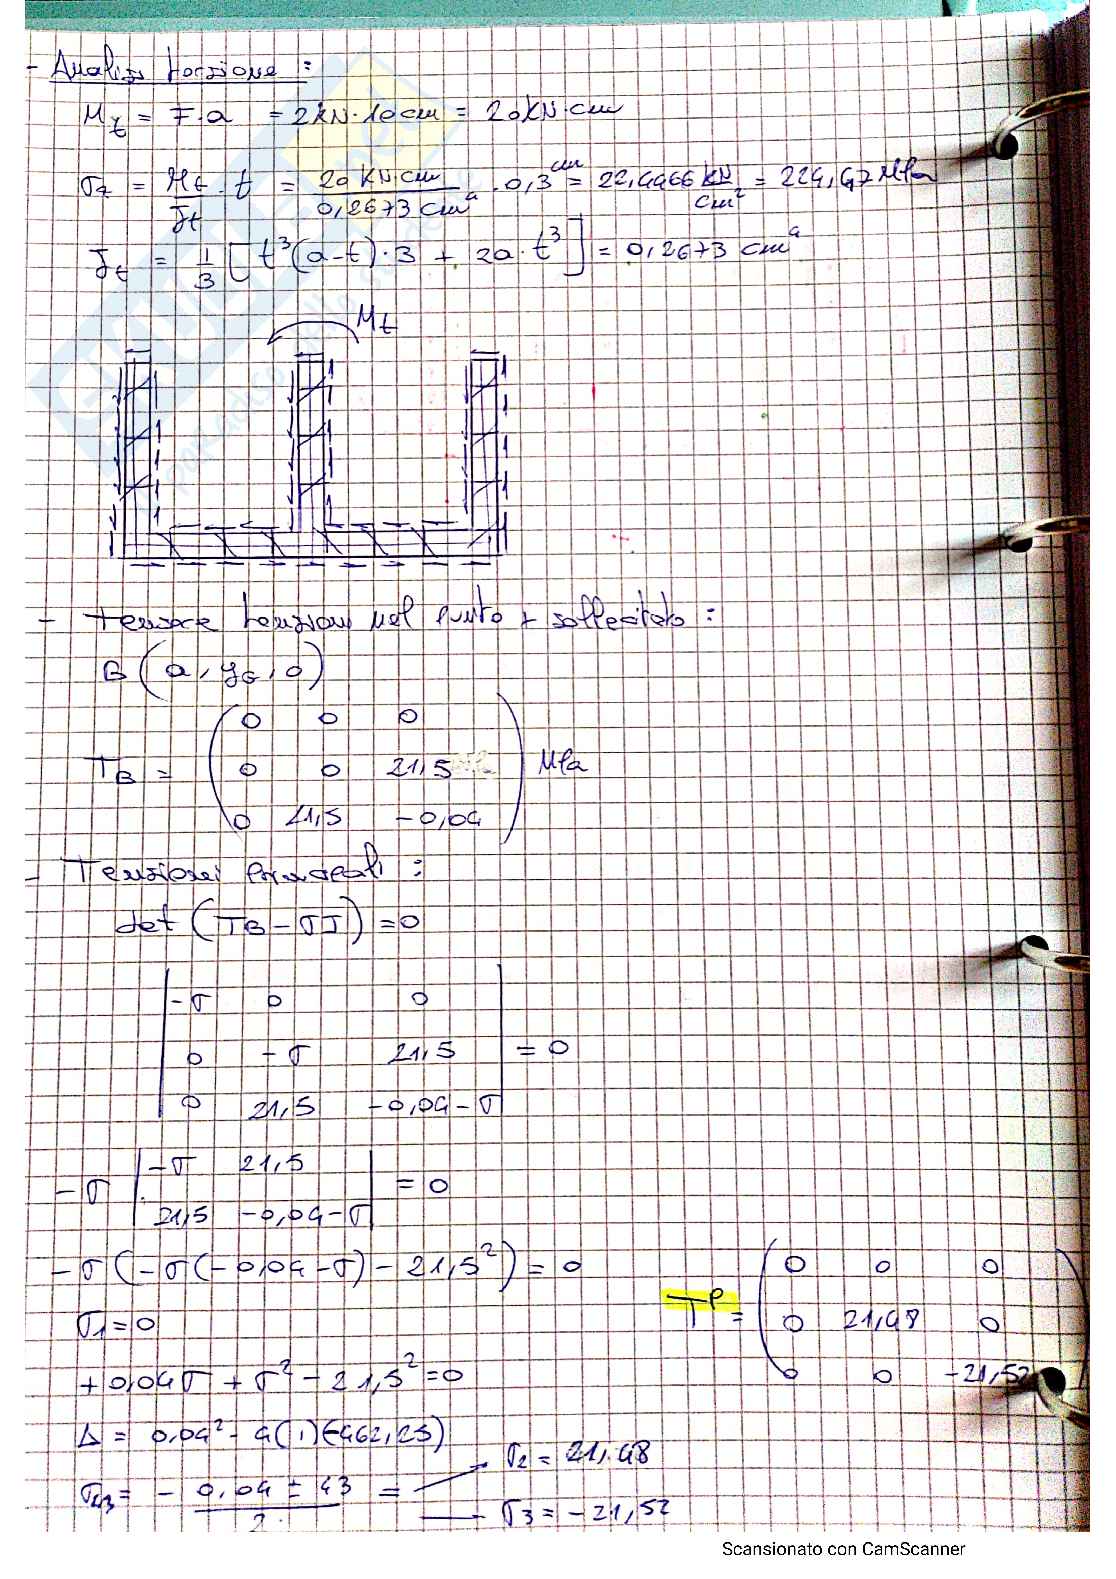 - Analisi torsione :
Mt = F·a = 2kN·10cm = 20kN·cm
σt = Mt/Jt · t = 20 kN·cm / 0,2673 cm⁴ · 0,3 cm = 22,4466 kN/cm² = 224,47 MPa
Jt = 1/3 [ t³(a-t)·3 + 2a·t³ ] = 0,2673 cm⁴
Mt
- Tensore tensioni nel punto + sollecitato :
B (a, yG, 0)
TB = ( 0 0 0
0 0 21,5
0 21,5 -0,04 ) MPa
- Tensioni principali :
det (TB - σI) = 0
| -σ 0 0
0 -σ 21,5 | = 0
0 21,5 -0,04-σ |
-σ | -σ 21,5 | = 0
21,5 -0,04-σ |
-σ (-σ(-0,04-σ) - 21,5²) = 0
σ1 = 0
+0,04σ + σ² - 21,5² = 0
Δ = 0,04² - 4(1)(-462,25)
σ2,3 = - 0,04 ± 43 / 2 =
σ2 = 21,48
σ3 = -21,52
T^P = ( 0 0 0
0 21,48 0
0 0 -21,52 )
Scansionato con CamScanner